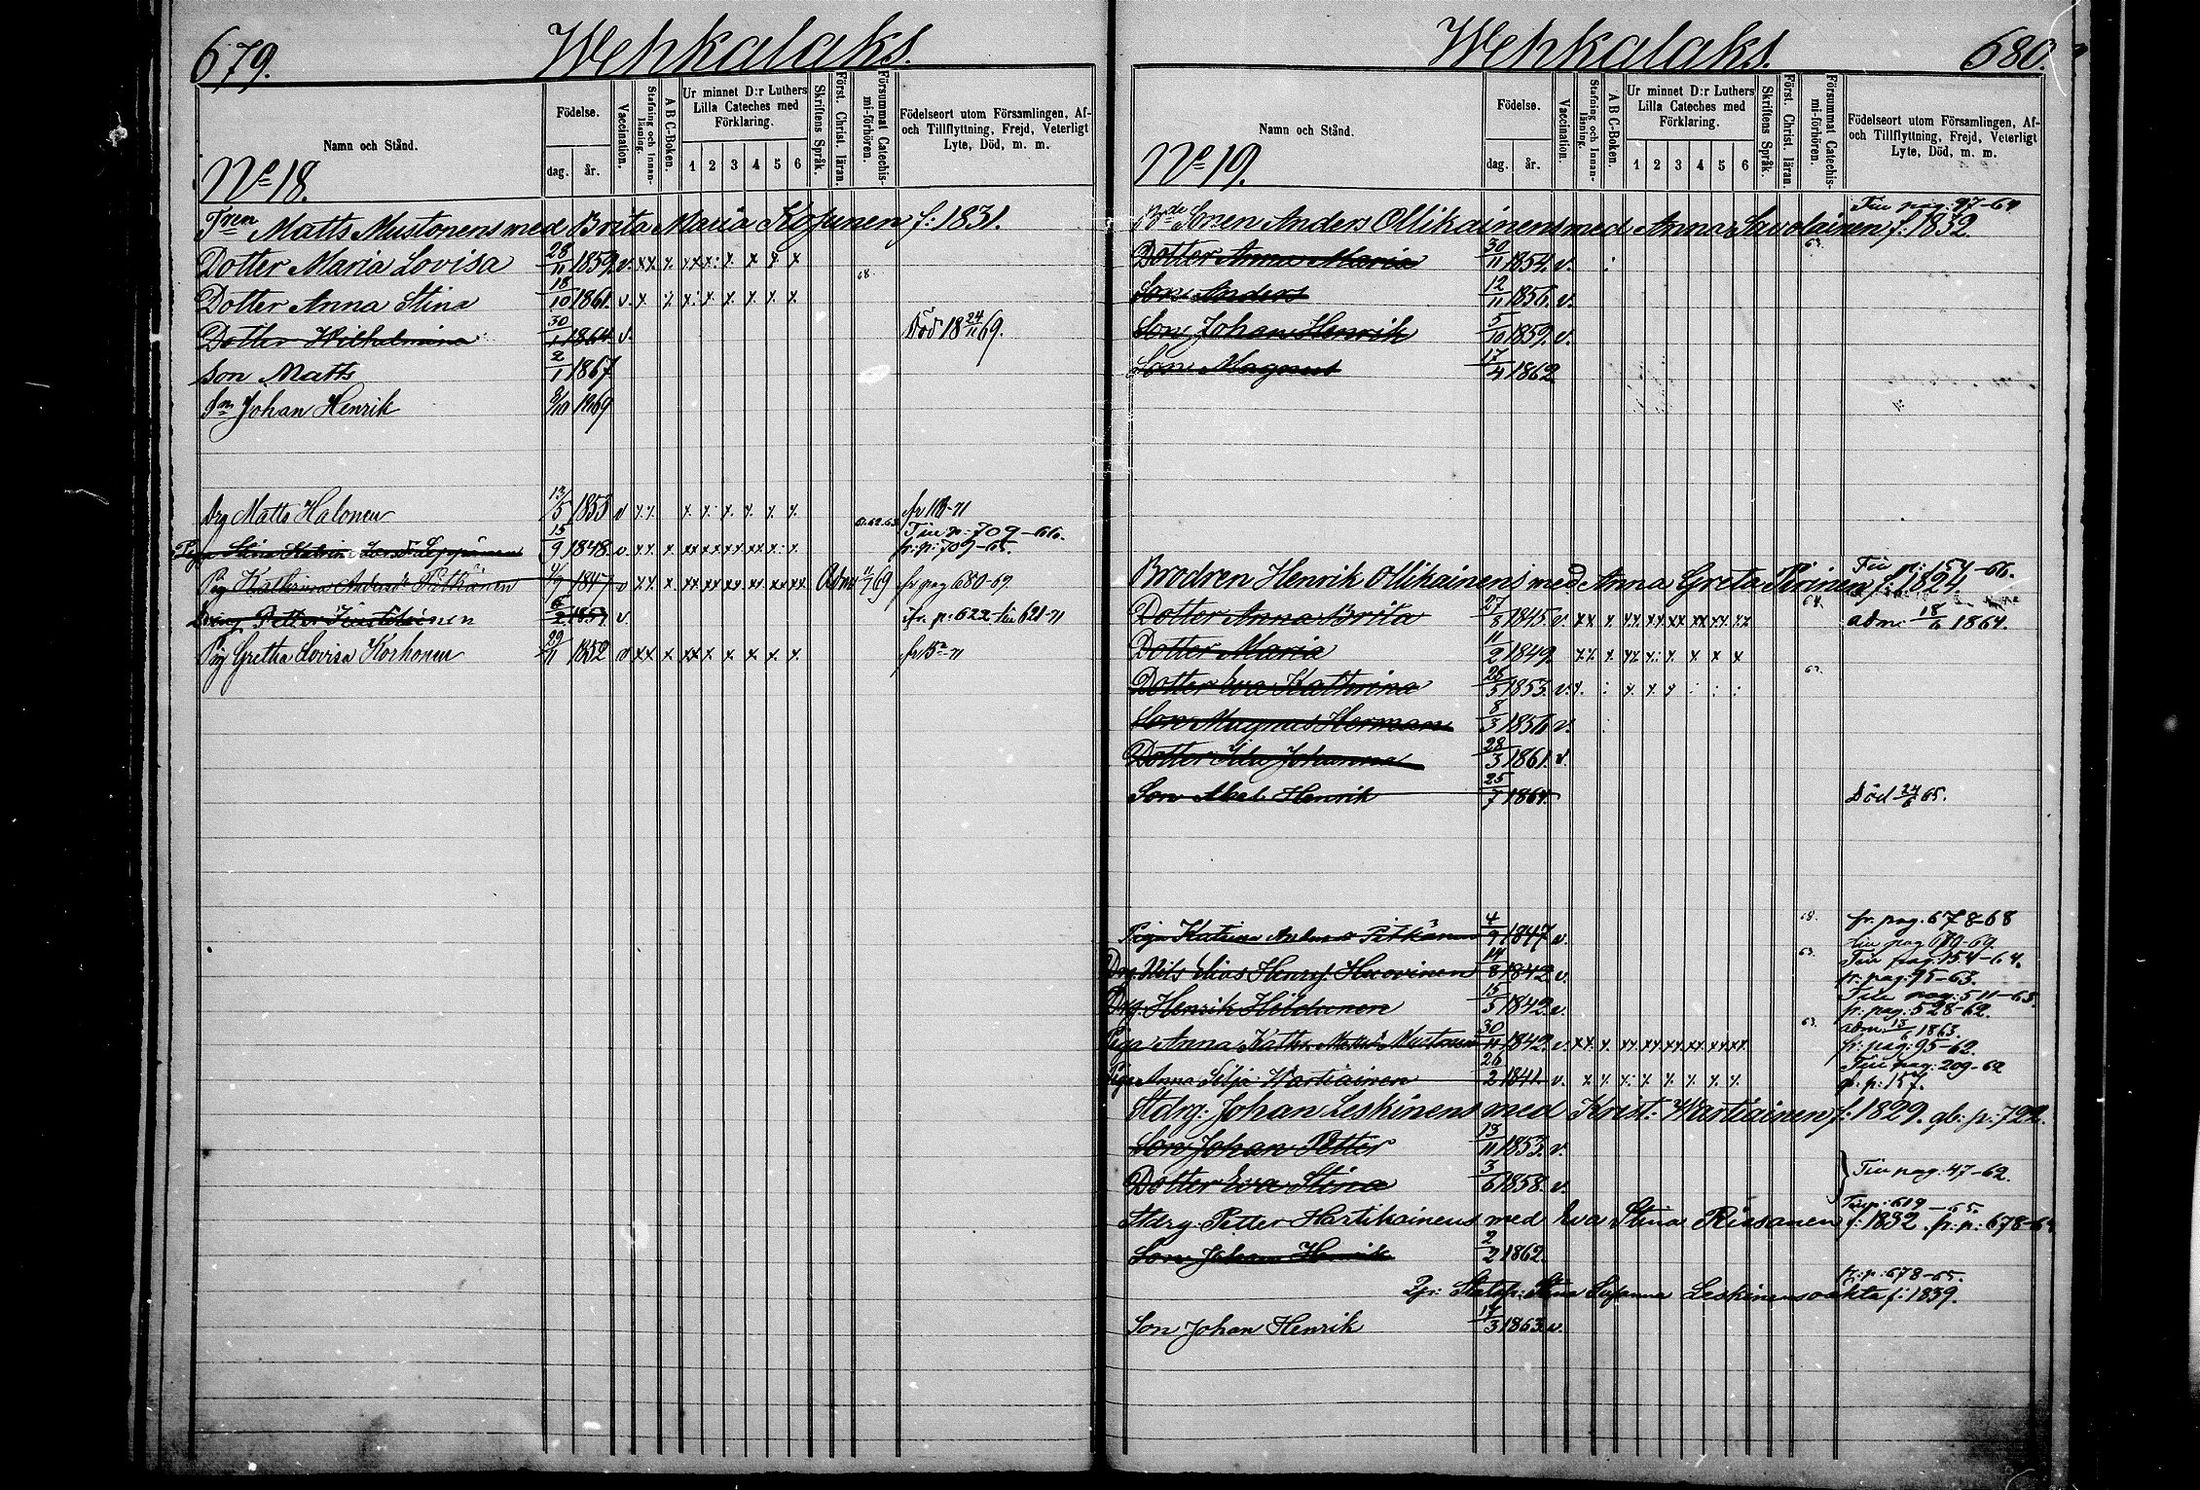 679. Wehkalaks.
Namn och Stånd.
Födelse.
dag. år.
Vaccination.
Stafning och Innanläsning.
A B C-Boken.
Ur minnet D:r Luthers Lilla Cateches med Förklaring.
1 2 3 4 5 6
Skriftens Språk.
Först. Christ. läran.
Försummat Catechismi-förhören.
Födelseort utom Församlingen, Af- och Tillflyttning, Frejd, Veterligt Lyte, Död, m. m.
No 18.
Matts Mustonens med Brita Maria Kosunen f: 1831.
Dotter Maria Lovisa 28/11 1859. v. xx x. x x x x x x
68.
Dotter Anna Stina 18/10 1861. v. x x x x x x x x
Dotter Wilhelmina 30/1 1864 v. Död 18 24/11 69.
Son Matts 2/1 1867
Sn Johan Henrik 8/10 1869
Drg Matts Halonen 13/5 1853 v xx x x x x x x
Till p: 709-66.
Piga Stina Katrin Leppänen 15/9 1848. v. xx x xx xx xx xx x x fr: p: 709-65.
Pig Kathrina Andersd Pitkänen 4/9 1847 v xx x xx xx xx xx xx xx Adm 69 fr pag 680-69
Dräng Petter v. fr. p: 622 till 621-71
Pig Gretha Lovisa Korhonen 29/11 1852 v xx x xx x x x x x
Wehkalaks. 680.
Namn och Stånd.
Födelse.
dag. år.
Vaccination.
Stafning och Innanläsning.
A B C-Boken.
Ur minnet D:r Luthers Lilla Cateches med Förklaring.
1 2 3 4 5 6
Skriftens Språk.
Först. Christ. läran.
Försummat Catechismi-förhören.
Födelseort utom Församlingen, Af- och Tillflyttning, Frejd, Veterligt Lyte, Död, m. m.
No 19.
Till pag: 97-64
Sonen Anders Ollikainens med Anna Savolainen f. 1832.
Dotter Anna Maria 30/11 1854. v.
Son Anders 12/11 1856. v.
Son Johan Henrik 5/10 1859. v.
Son Magnus 17/4 1862
Till p: 154-66.
Brodren Henrik Ollikainens med Anna Greta Piirinen f: 1824.
Dotter Anna Brita 27/8 1845. v. xx x xx xx xx xx xx xx 64. adm: 18/6 1864.
Dotter Maria 11/2 1849. xx x xx x x x x x
Dotter Eva Kathrina 26/5 1853. v. x. x x x 63.
Son Magnus Herman 8/3 1856. v.
Dotter Ida Johanna 28/3 1861. v.
Son Abel Henrik 25/7 1864. Död 24/6 65.
fr. pag. 678-68
Piga Katrina Andersd Pitkänen 4/9 1847 v. till pag 679-69.
Till pag: 154-64.
Drg. Nils Elias Henr:s Huovinen 14/8 1842 v. 63. fr: pag: 95-63.
Till pag: 511-63.
Drg. Henrik 15/5 1842. v. fr: pag: 528-62.
adm: 1863.
Piga Anna Kathr. Mattsd Mustonen 30/11 1842. v. xx x xx xx xx xx xx xx 63. fr: pag: 95-62.
Till pag: 209-62
Piga Anna Silja Hartikainen 26/2 1841. v. x x x x x x x x gb: p: 157.
Stdrg: Johan Leskinens med Krist: Hartikainen f: 1829. gb: p: 722.
Son Johan Petter 13/11 1853. v.
Till pag. 47-62.
Dotter Eva Stina 3/6 1858. v.
Till p: 619-65.
Stdrg. Petter Hartikainens med Eva Stina Riissanen f: 1832. fr: p: 678-
Son Johan Henrik 2/2 1862.
fr: p: 678-65.
Stina Susanna Leskinens f: 1839.
Son Johan Henrik 14/3 1863. v.